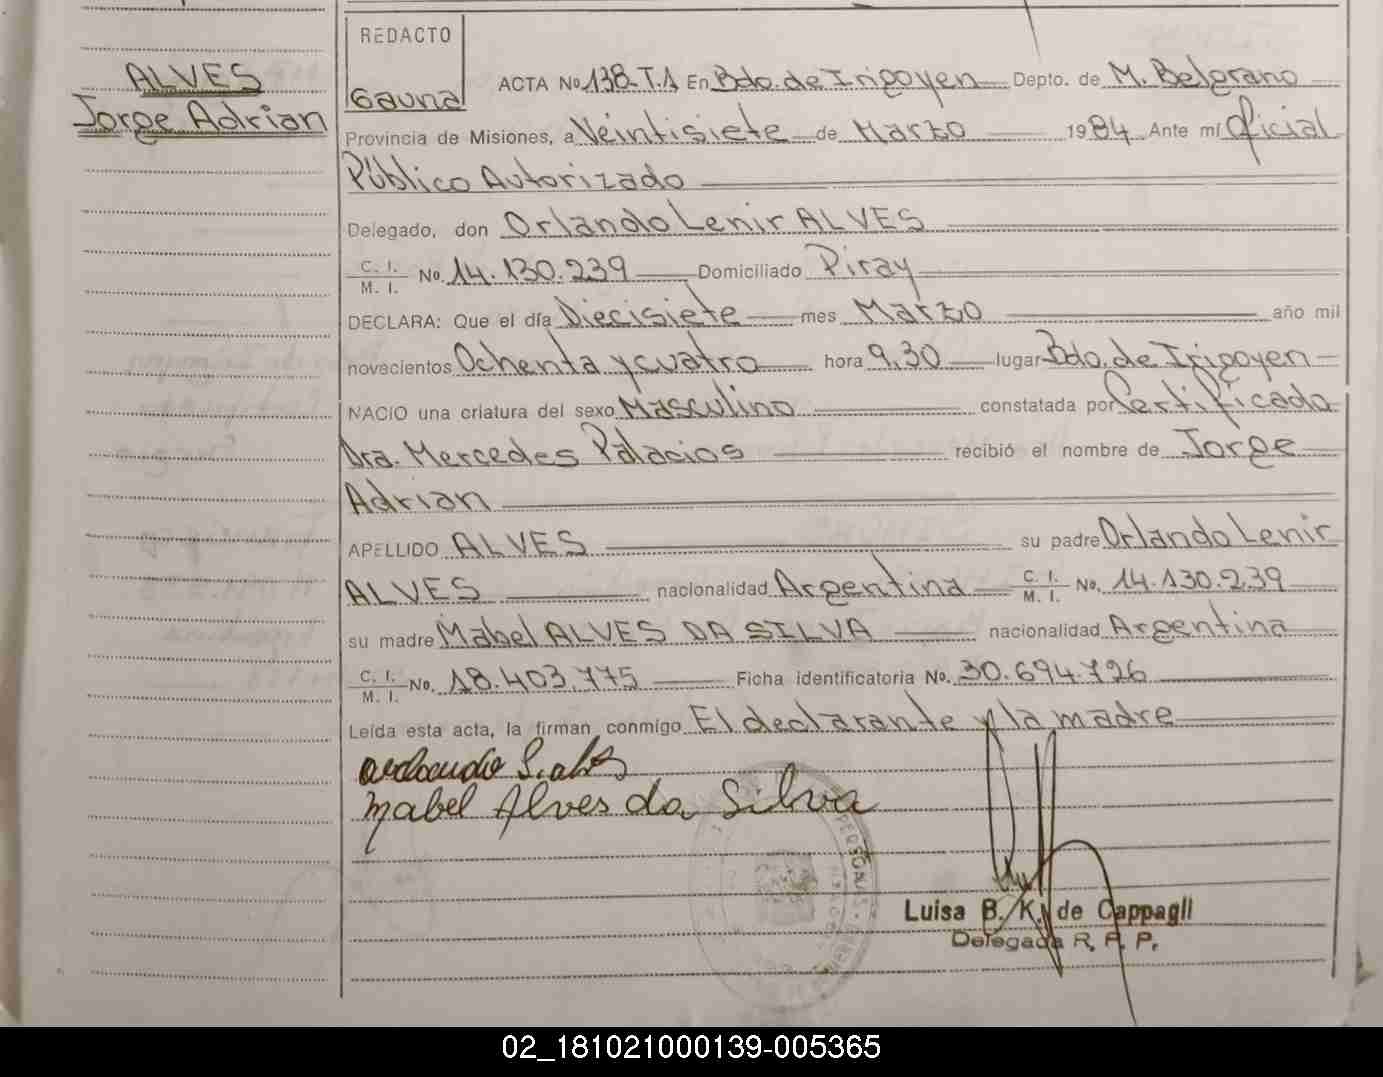 ALVES
Jorge Adrian
REDACTO
Gauna
ACTA No 138-T.1 En Bdo. de Irigoyen Depto. de M. Belgrano
Provincia de Misiones, a Veintisiete de Marzo 1984 Ante mí Oficial
Público Autorizado
Delegado, don Orlando Lenir ALVES
C. I.
M. I. No. 14.130.239 Domiciliado Piray
DECLARA: Que el día Diecisiete mes Marzo año mil
novecientos Ochenta y cuatro hora 9,30 lugar Bdo. de Irigoyen
NACIO una criatura del sexo Masculino constatada por Certificado
Dra. Mercedes Palacios recibió el nombre de Jorge
Adrian
APELLIDO ALVES su padre Orlando Lenir
ALVES nacionalidad Argentina C. I. M. I. No. 14.130.239
su madre Mabel ALVES DA SILVA nacionalidad Argentina
C. I.
M. I. No. 18.403.775 Ficha identificatoria No. 30.694.726
Leída esta acta, la firman conmigo El declarante y la madre
Mabel Alves da Silva
PERSONAS
Luisa B. K. de Cappagli
Delegada R. P. P.
02_181021000139-005365